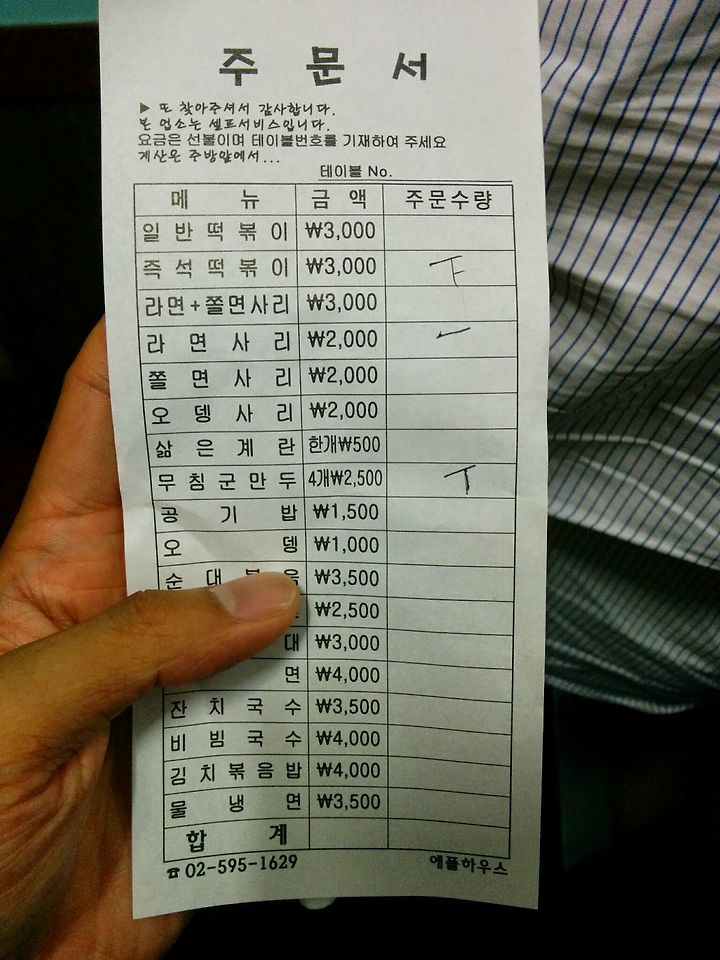 주문서
▶ 또 찾아주셔서 감사합니다.
본 업소는 셀프서비스입니다.
요금은 선불이며 테이블번호를 기재하여 주세요
계산은 주방앞에서...
테이블 No.
메뉴 금액 주문수량
일반떡볶이 ₩3,000
즉석떡볶이 ₩3,000
라면+쫄면사리 ₩3,000
라면사리 ₩2,000
쫄면사리 ₩2,000
오뎅사리 ₩2,000
삶은계란 한개₩500
무침군만두 4개₩2,500
공기밥 ₩1,500
오뎅 ₩1,000
순대볶음 ₩3,500
₩2,500
대 ₩3,000
면 ₩4,000
잔치국수 ₩3,500
비빔국수 ₩4,000
김치볶음밥 ₩4,000
물냉면 ₩3,500
합계
☎ 02-595-1629 애플하우스